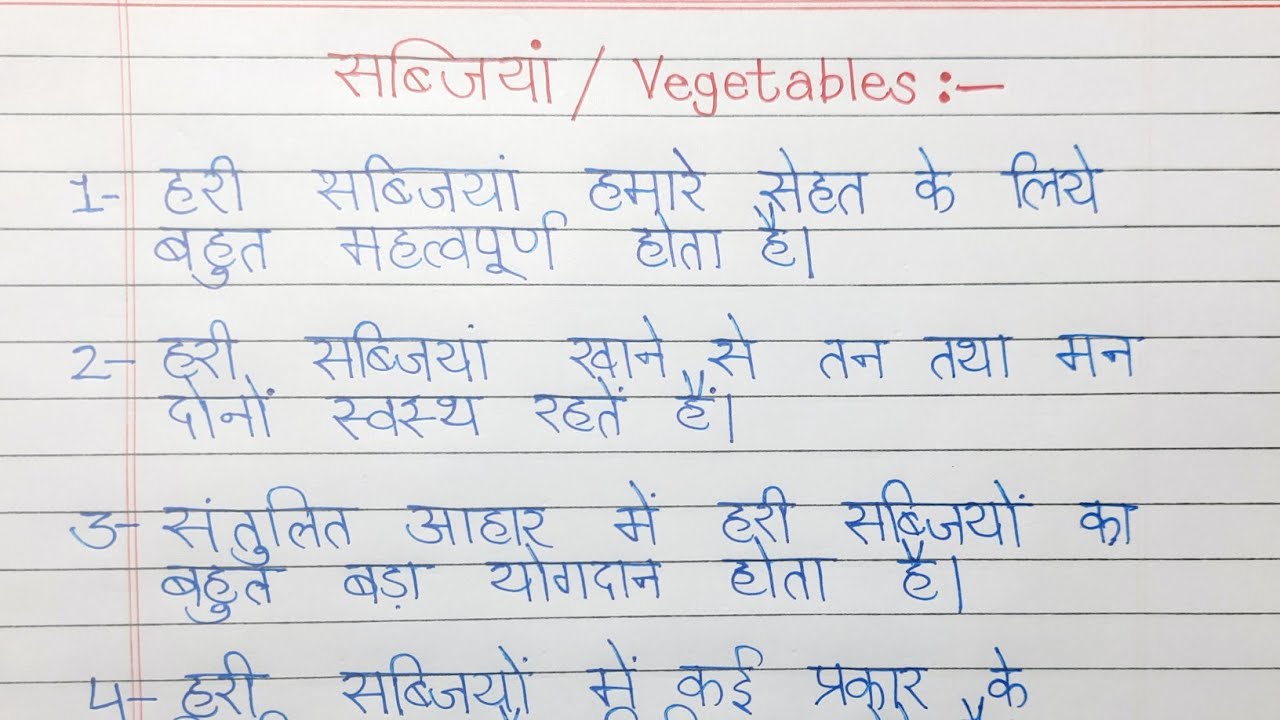 सब्जियां / Vegetables :-
1- हरी सब्जियां हमारे सेहत के लिये
बहुत महत्वपूर्ण होता है।
2- हरी सब्जियां खाने से तन तथा मन
दोनों स्वस्थ रहतें हैं।
3- संतुलित आहार में हरी सब्जियों का
बहुत बड़ा योगदान होता है।
4- हरी सब्जियों में कई प्रकार के